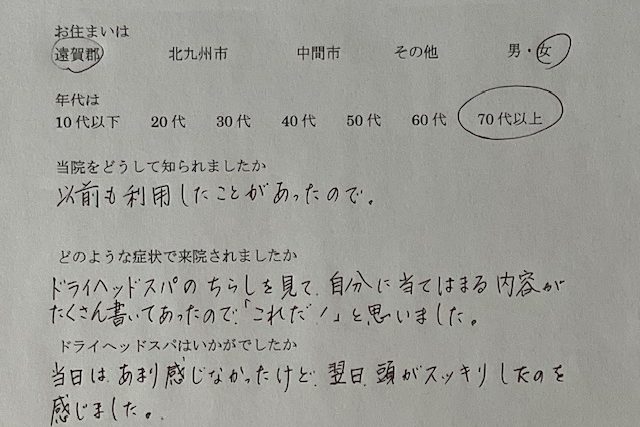 お住まいは
遠賀郡 北九州市 中間市 その他 男・女
年代は
10代以下 20代 30代 40代 50代 60代 70代以上
当院をどうして知られましたか
以前も利用したことがあったので。
どのような症状で来院されましたか
ドライヘッドスパのちらしを見て、自分に当てはまる内容が
たくさん書いてあったので、「これだ!」と思いました。
ドライヘッドスパはいかがでしたか
当日は、あまり感じなかったけど、翌日、頭がスッキリしたのを
感じました。